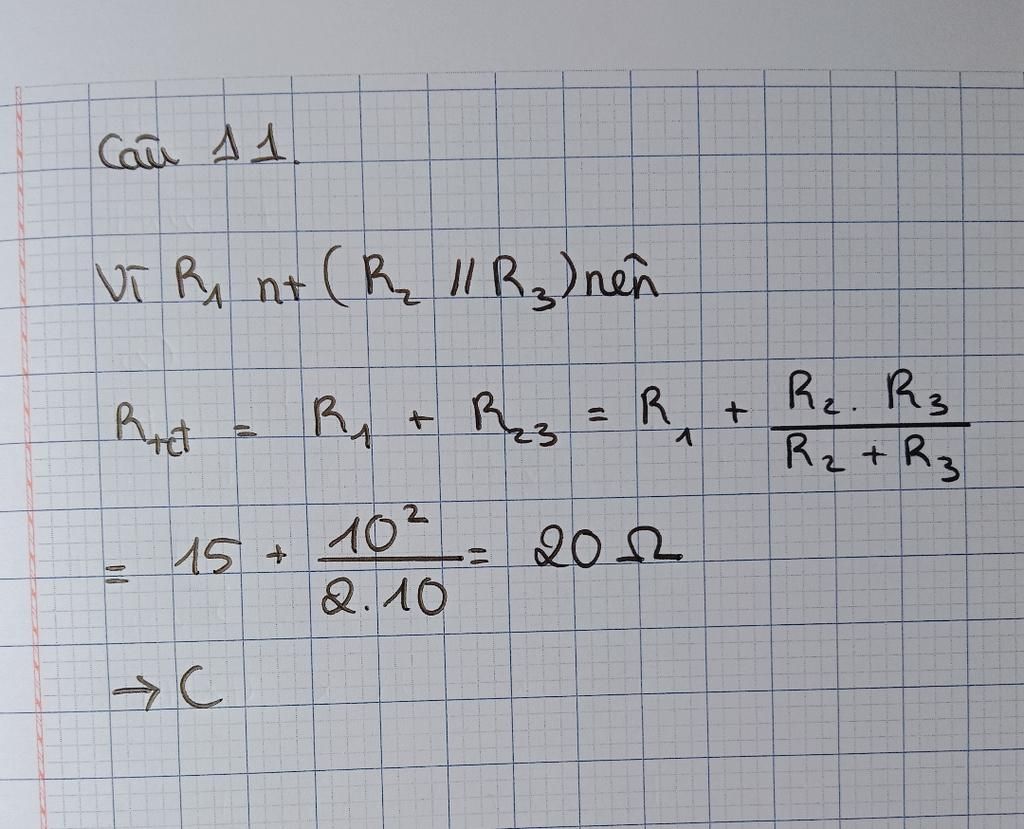 Câu 11.
Vì R₁ nt ( R₂ // R₃ ) nên
R₊c₊ = R₁ + R₂₃ = R₁ + \frac{R₂ . R₃}{R₂ + R₃}
= 15 + \frac{10²}{2.10} = 20 Ω
→ C